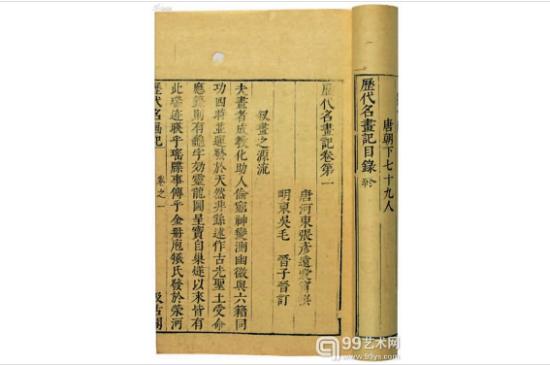 唐朝下七十九人
歷代名畫記目錄 終
歷代名畫記卷第一
唐河東張彥遠愛賓撰
明東吳毛 晉子晉訂
叙畫之源流
夫畫者成教化助人倫窮神變測幽微與六籍同
功四時並運發於天然非繇述作古先聖王受命
應籙則有龜字效靈龍圖呈寶自巢燧以來皆有
此瑞迹暎乎瑤牒事傳乎金冊庖犧氏發於滎河
歷代名畫記 卷之一 汲古閣
99艺术网
www.99ys.com